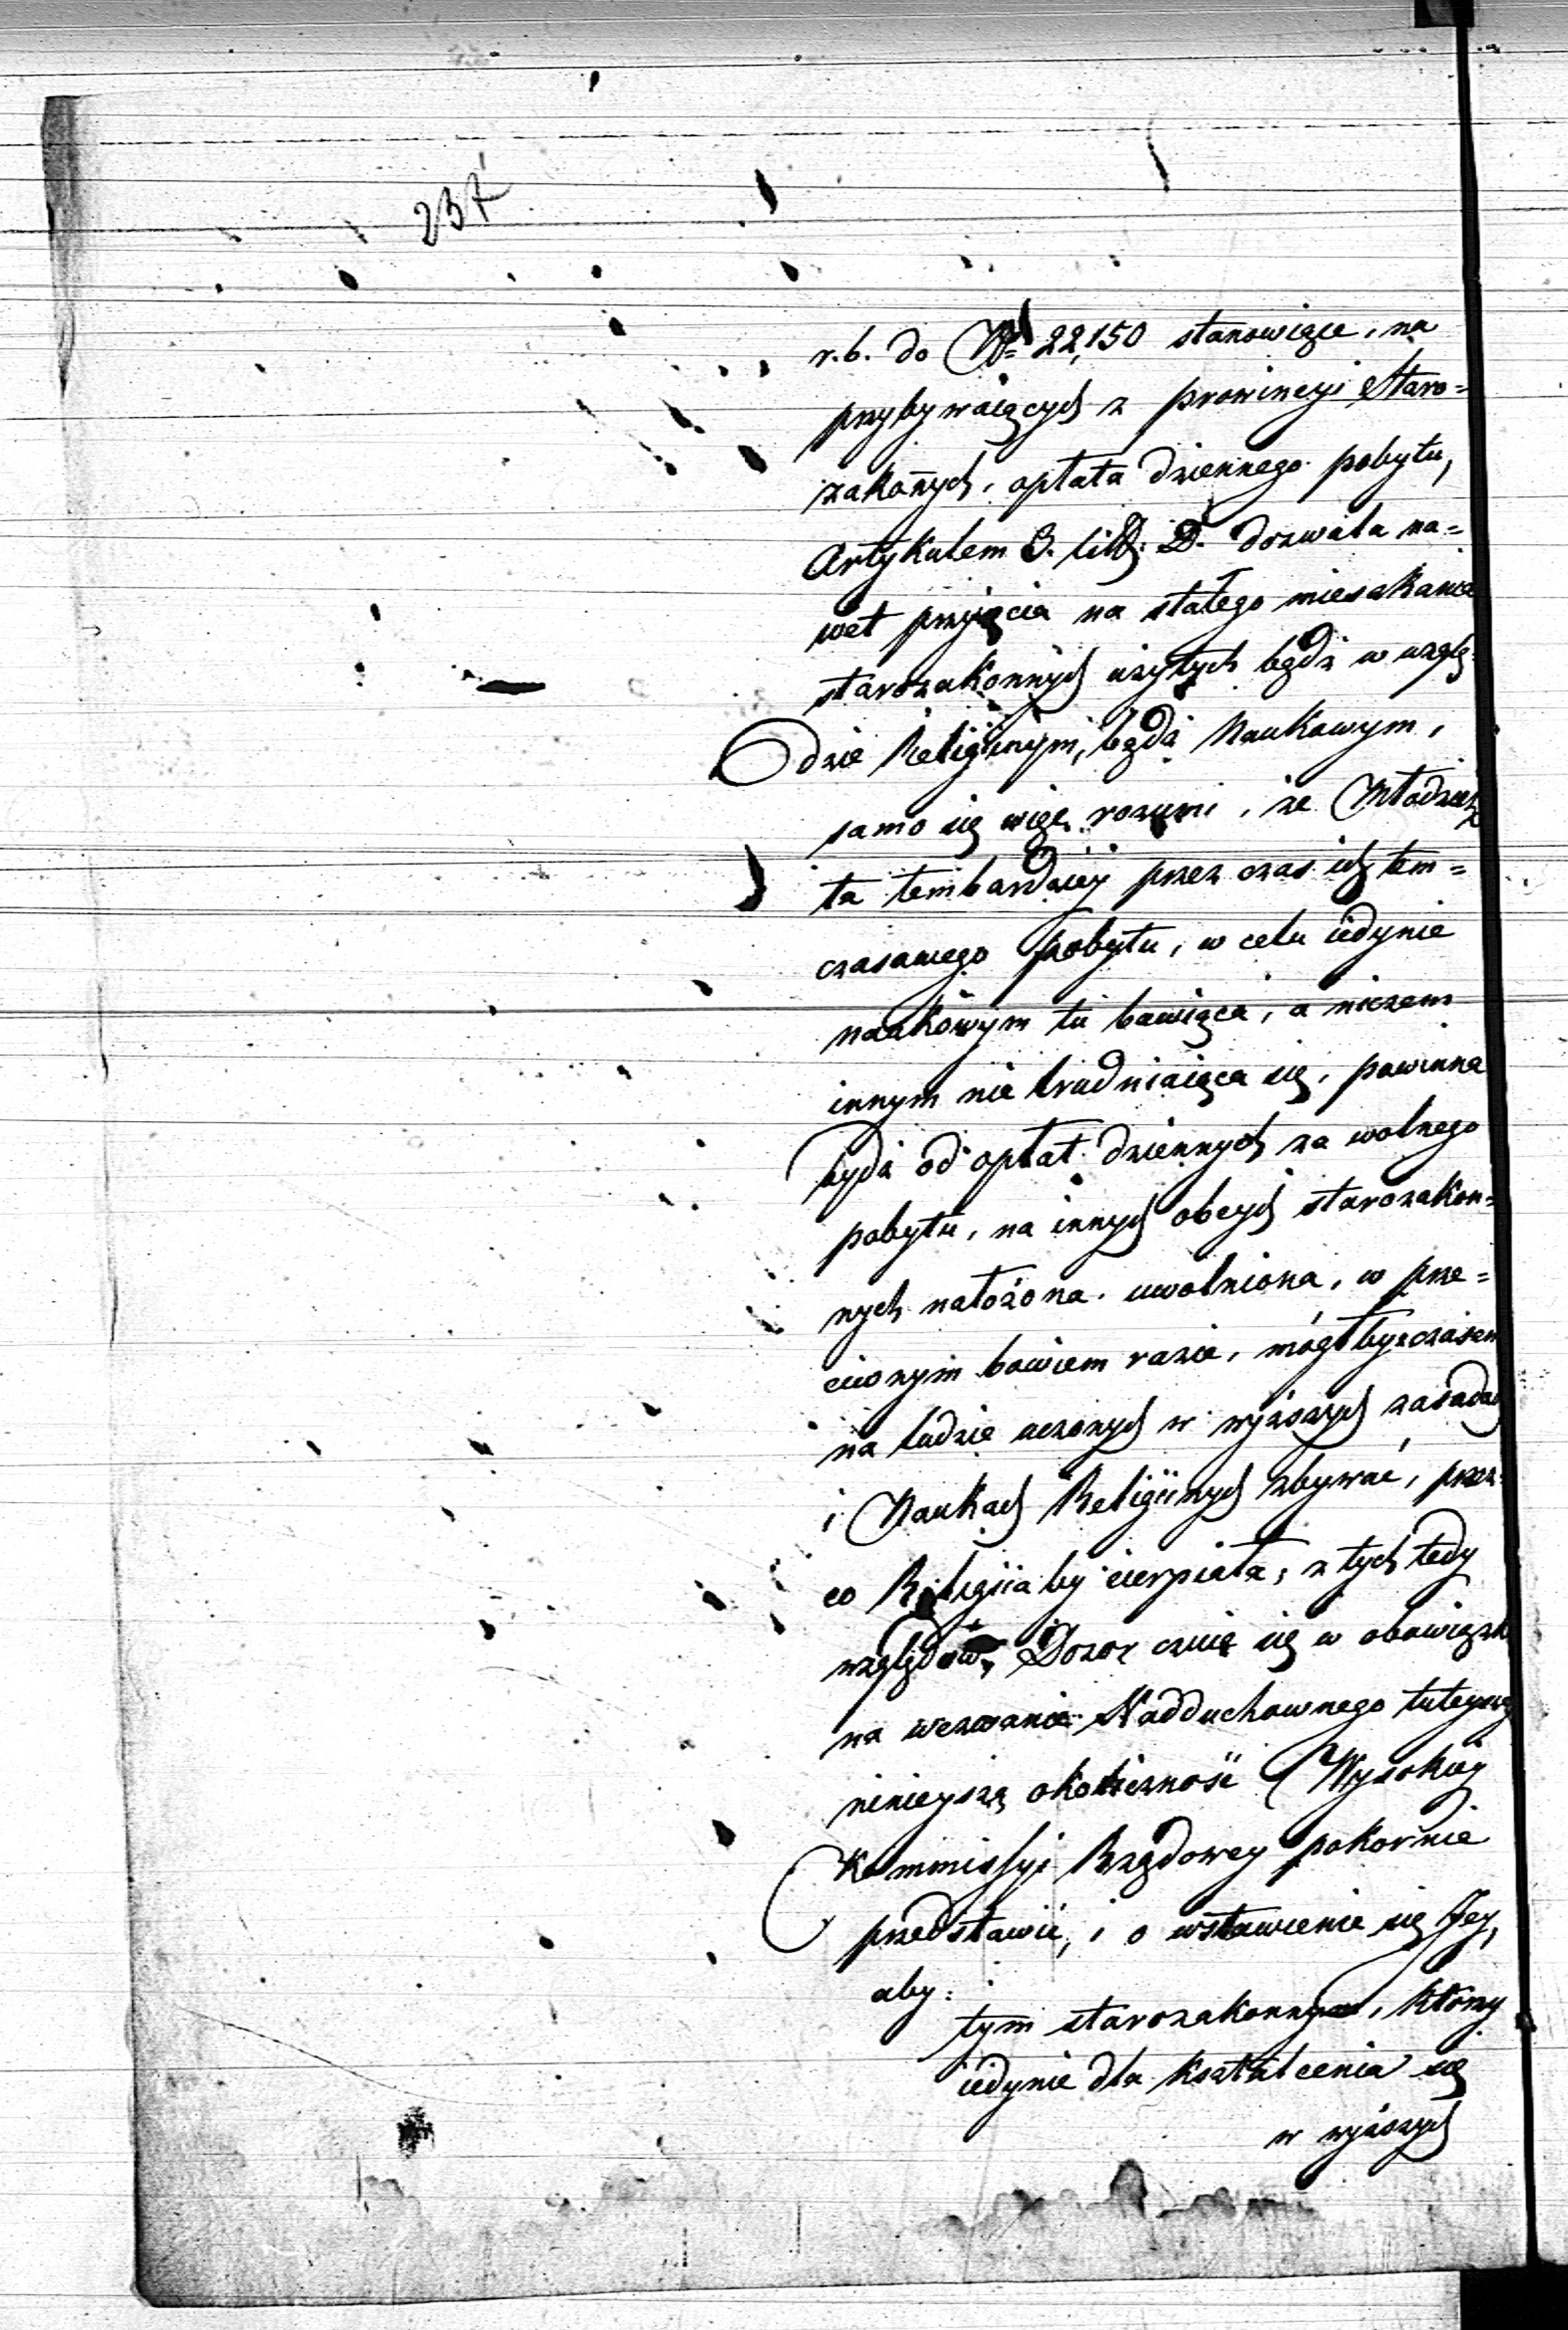 237
r.b. do № 22,150 stanowiące, na
przybywaiących z prowincyi Staro=
zakonych, opłata dziennego pobytu,
Artykułem 3. litt: D. dozwala na=
wet przyięcia na stałego mieszkańca
starozakonnych użytych bądź w wzglę=
dzie Religiinym, bądź Naukowym,
samo się więc rozumi, że Młodzież
ta tembardziey przez czas ich tem=
czasowego pobytu, w celu iedynie
naukowym tu bawiąca, a niczem
innym nie trudniaiąca się, powinna
bydź od opłat dziennych za wolnego
pobytu, na innych obcych starozakon=
nych nałożona. uwolniona, w prze=
ciwnym bowiem razie, mógłby z czasem
na ludzie uczonych w wyższych zasadach
i Naukach Religiinych zbywać, przez
co Religiia by cierpiała; z tych tedy
względów, Dozor czuie się w obowiązku
na wezwanie Nadduchownego tuteyszego
ninieyszą okoliczność Wysokiey
Kommissyi Rządowey pokornie
przedstawić, i o wstawienie się Jey,
aby:
tym starozakonnym, którzy
iedynie dla kształcenia się
w wyższych